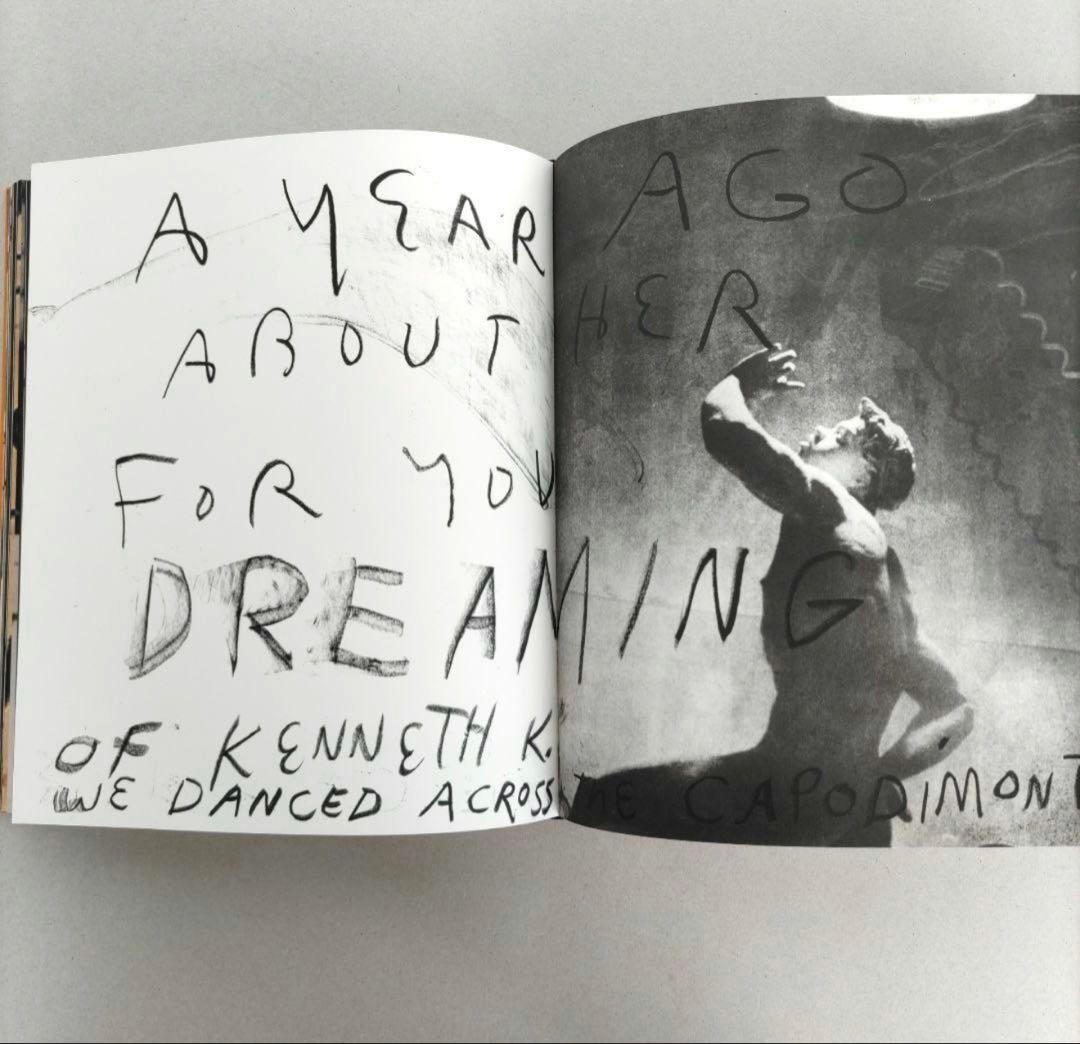 A YEAR AGO
ABOUT HER
FOR YOU
DREAMING
OF KENNETH K.
WE DANCED ACROSS THE CAPODIMONT